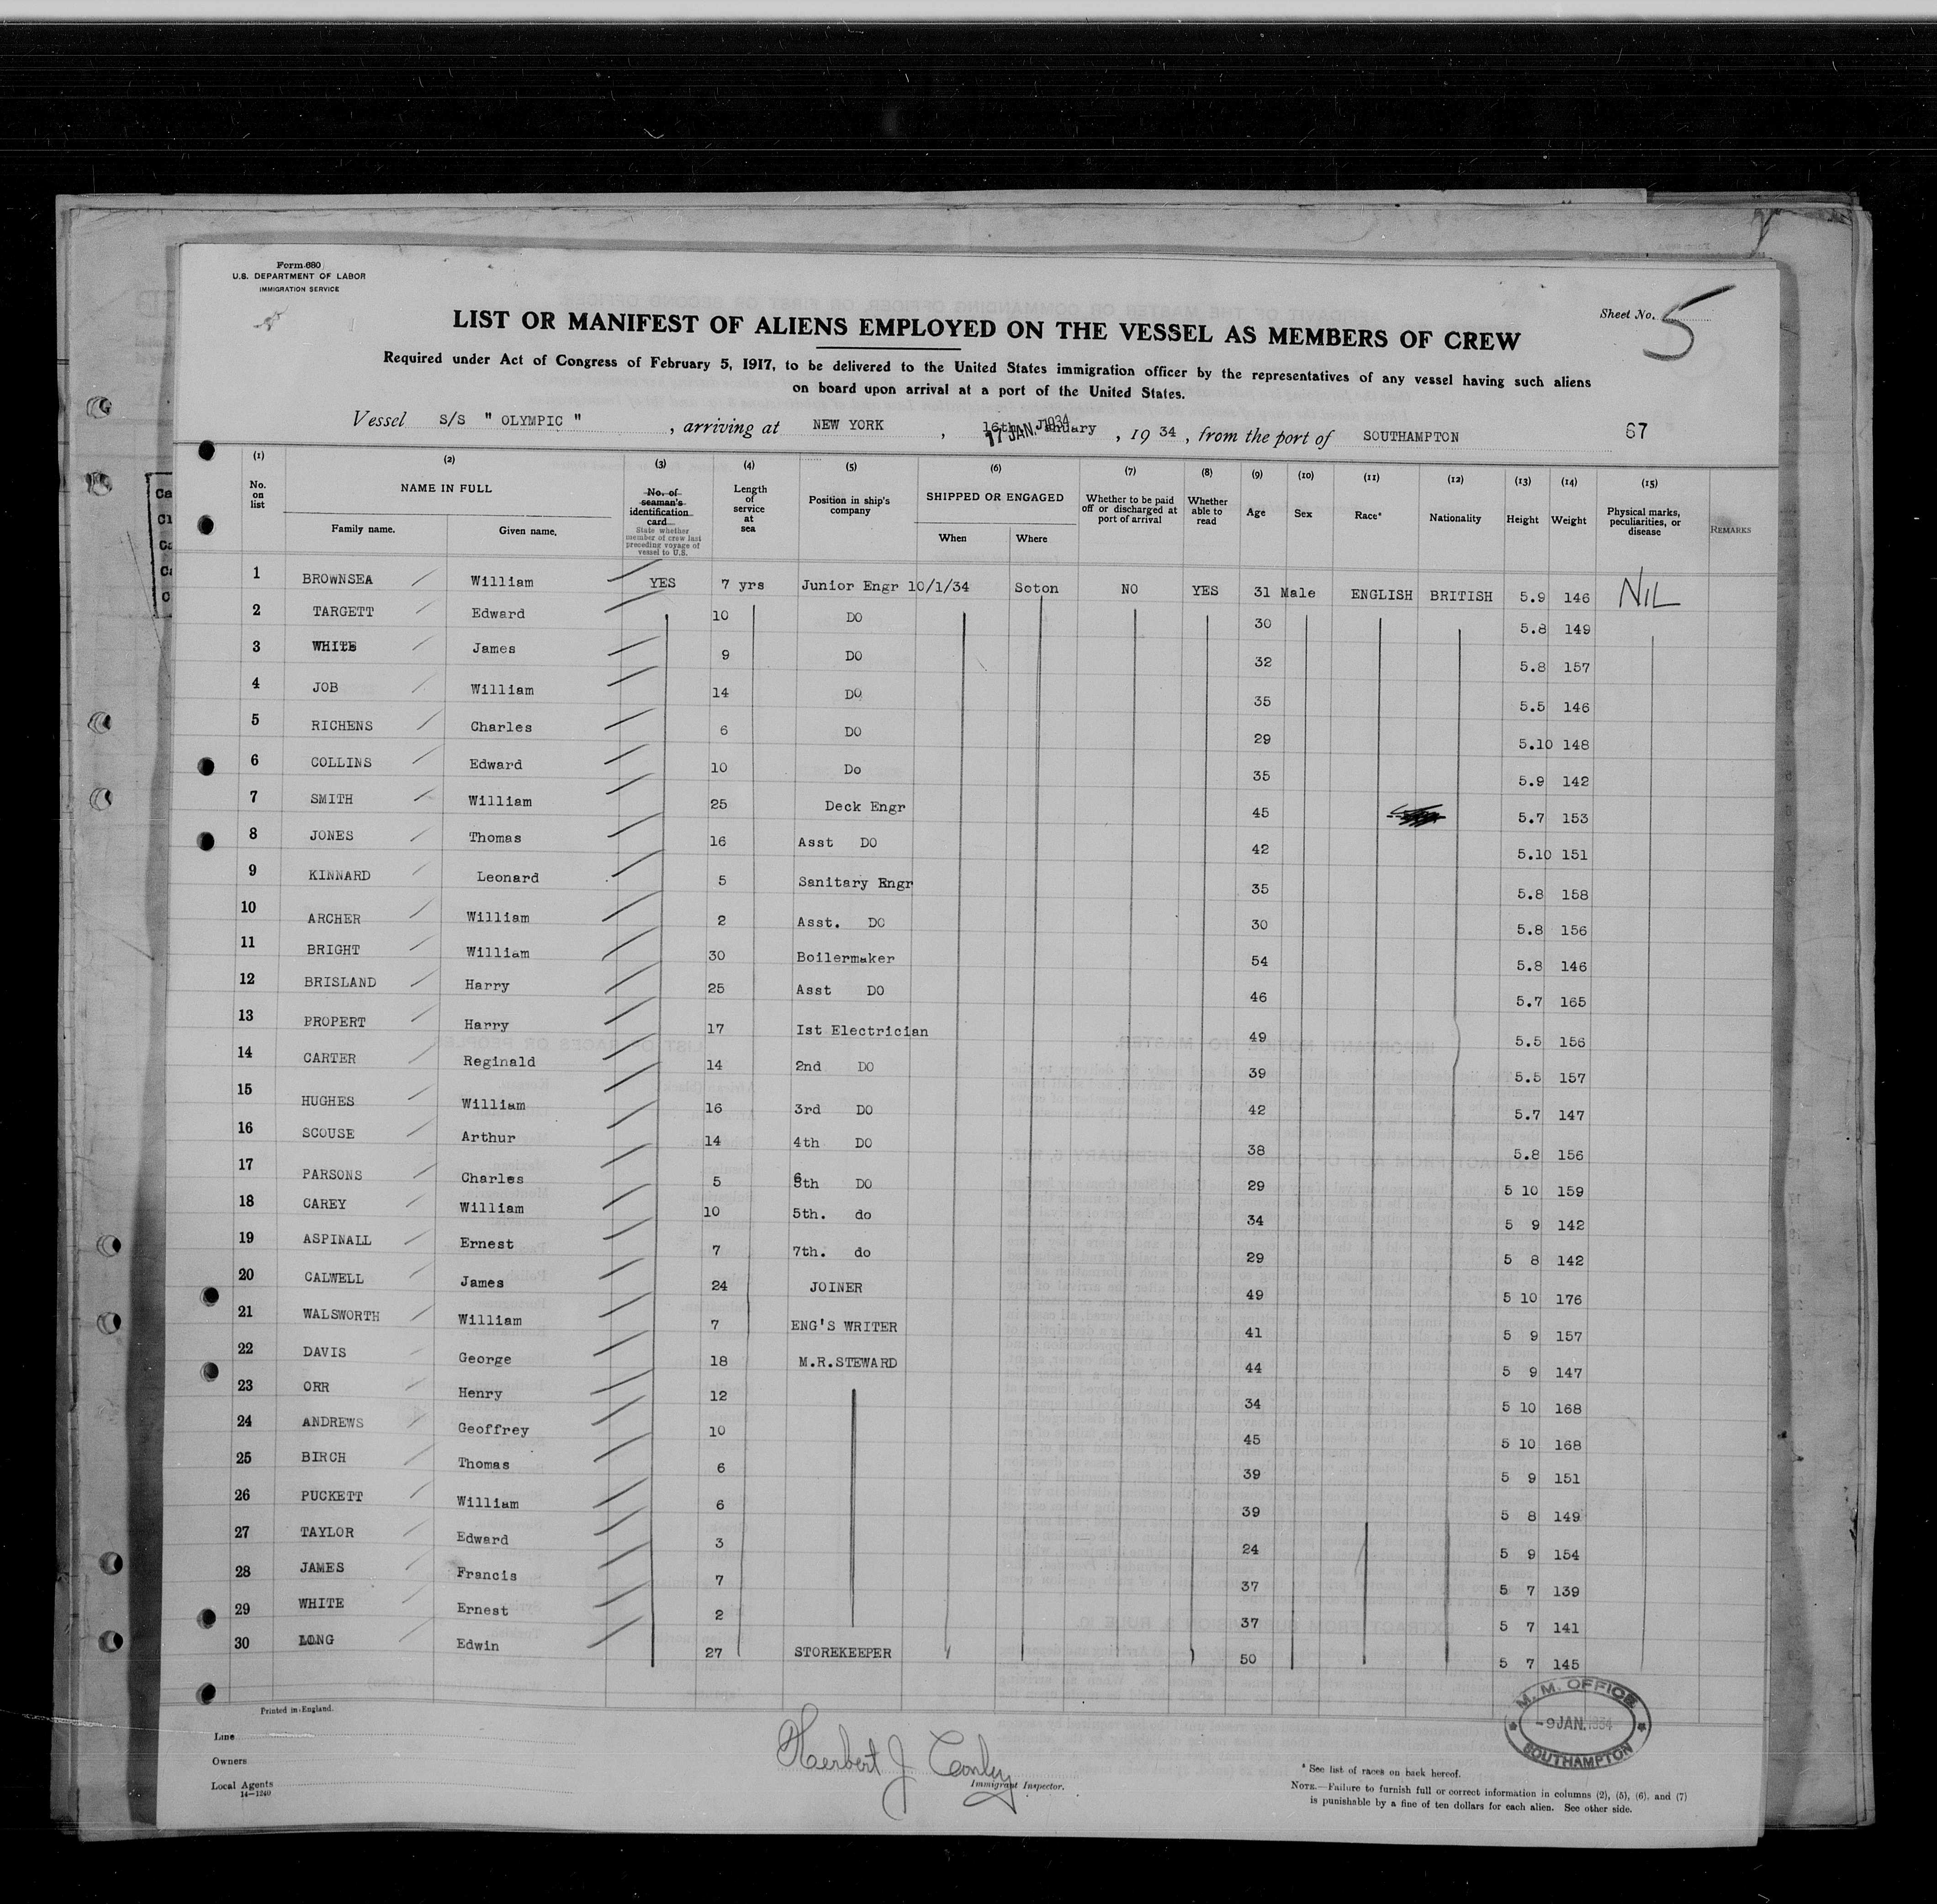 Form 680
U.S. DEPARTMENT OF LABOR
IMMIGRATION SERVICE
Sheet No. 5
LIST OR MANIFEST OF ALIENS EMPLOYED ON THE VESSEL AS MEMBERS OF CREW
Required under Act of Congress of February 5, 1917, to be delivered to the United States immigration officer by the representatives of any vessel having such aliens
on board upon arrival at a port of the United States.
Vessel S/S " OLYMPIC " , arriving at NEW YORK , 16th January 17 JAN. 1934 , 19 34 , from the port of SOUTHAMPTON 67
(1) (2) (3) (4) (5) (6) (7) (8) (9) (10) (11) (12) (13) (14) (15)
No. on list NAME IN FULL Family name. Given name. No. of seaman's identification card State whether member of crew last preceding voyage of vessel to U.S. Length of service at sea Position in ship's company SHIPPED OR ENGAGED When Where Whether to be paid off or discharged at port of arrival Whether able to read Age Sex Race* Nationality Height Weight Physical marks, peculiarities, or disease REMARKS
1 BROWNSEA William YES 7 yrs Junior Engr 10/1/34 Soton NO YES 31 Male ENGLISH BRITISH 5.9 146 NIL
2 TARGETT Edward 10 DO 30 5.8 149
3 WHITE James 9 DO 32 5.8 157
4 JOB William 14 DO 35 5.5 146
5 RICHENS Charles 6 DO 29 5.10 148
6 COLLINS Edward 10 Do 35 5.9 142
7 SMITH William 25 Deck Engr 45 5.7 153
8 JONES Thomas 16 Asst DO 42 5.10 151
9 KINNARD Leonard 5 Sanitary Engr 35 5.8 158
10 ARCHER William 2 Asst. DO 30 5.8 156
11 BRIGHT William 30 Boilermaker 54 5.8 146
12 BRISLAND Harry 25 Asst DO 46 5.7 165
13 PROPERT Harry 17 Ist Electrician 49 5.5 156
14 CARTER Reginald 14 2nd DO 39 5.5 157
15 HUGHES William 16 3rd DO 42 5.7 147
16 SCOUSE Arthur 14 4th DO 38 5.8 156
17 PARSONS Charles 5 6th DO 29 5 10 159
18 CAREY William 10 5th. do 34 5 9 142
19 ASPINALL Ernest 7 7th. do 29 5 8 142
20 CALWELL James 24 JOINER 49 5 10 176
21 WALSWORTH William 7 ENG'S WRITER 41 5 9 157
22 DAVIS George 18 M.R.STEWARD 44 5 9 147
23 ORR Henry 12 34 5 10 168
24 ANDREWS Geoffrey 10 45 5 10 168
25 BIRCH Thomas 6 39 5 9 151
26 PUCKETT William 6 39 5 8 149
27 TAYLOR Edward 3 24 5 9 154
28 JAMES Francis 7 37 5 7 139
29 WHITE Ernest 2 37 5 7 141
30 LONG Edwin 27 STOREKEEPER 50 5 7 145
Printed in England.
M. M. OFFICE
-9 JAN. 1934
SOUTHAMPTON
Line
Owners
Local Agents
14—1240
Herbert J Conley
Immigrant Inspector.
* See list of races on back hereof.
NOTE.—Failure to furnish full or correct information in columns (2), (5), (6), and (7)
is punishable by a fine of ten dollars for each alien. See other side.